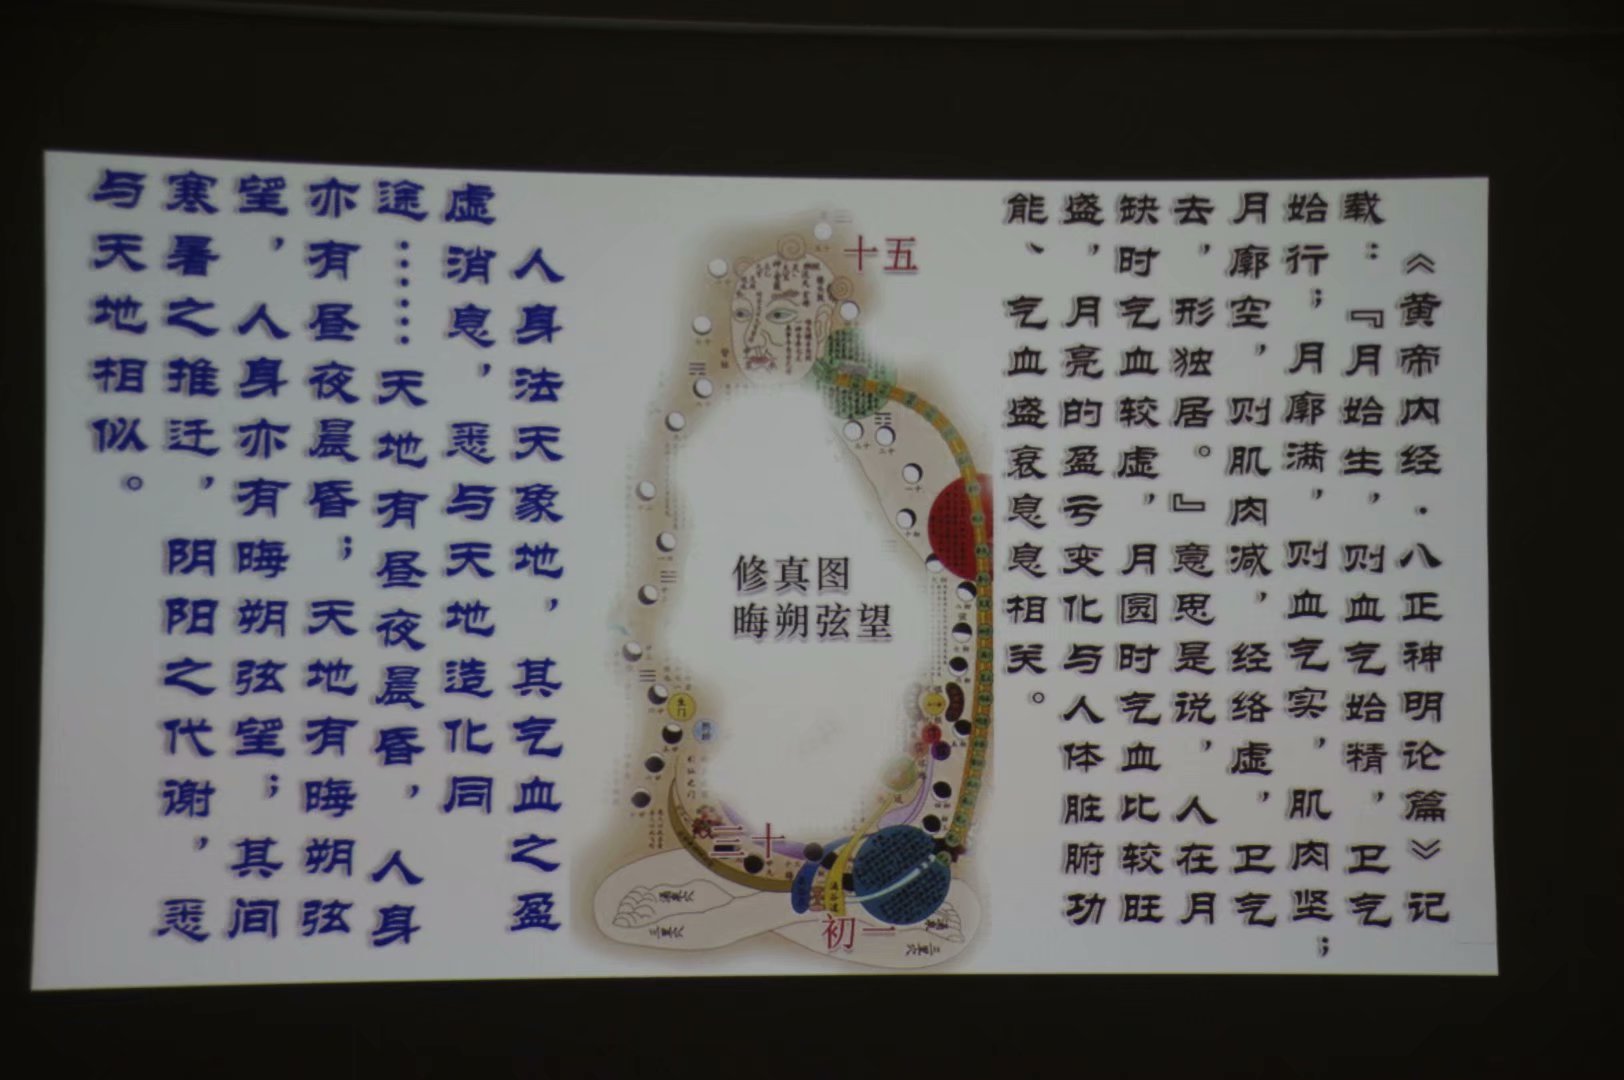 《黄帝内经·八正神明论篇》记
载：『月始生，则血气始精，卫气
始行；月廓满，则血气实，肌肉坚；
月廓空，则肌肉减，经络虚，卫气
去，形独居。』意思是说，人在月
缺时气血较虚，月圆时气血比较旺
盛，月亮的盈亏变化与人体脏腑功
能、气血盛衰息息相关。
十五
修真图
晦朔弦望
三十
初一
涌泉穴
三里穴
涌泉穴
三里穴
生门
人身法天象地，其气血之盈
虚消息，悉与天地造化同
途……天地有昼夜晨昏，人身
亦有昼夜晨昏；天地有晦朔弦
望，人身亦有晦朔弦望；其间
寒暑之推迁，阴阳之代谢，悉
与天地相似。